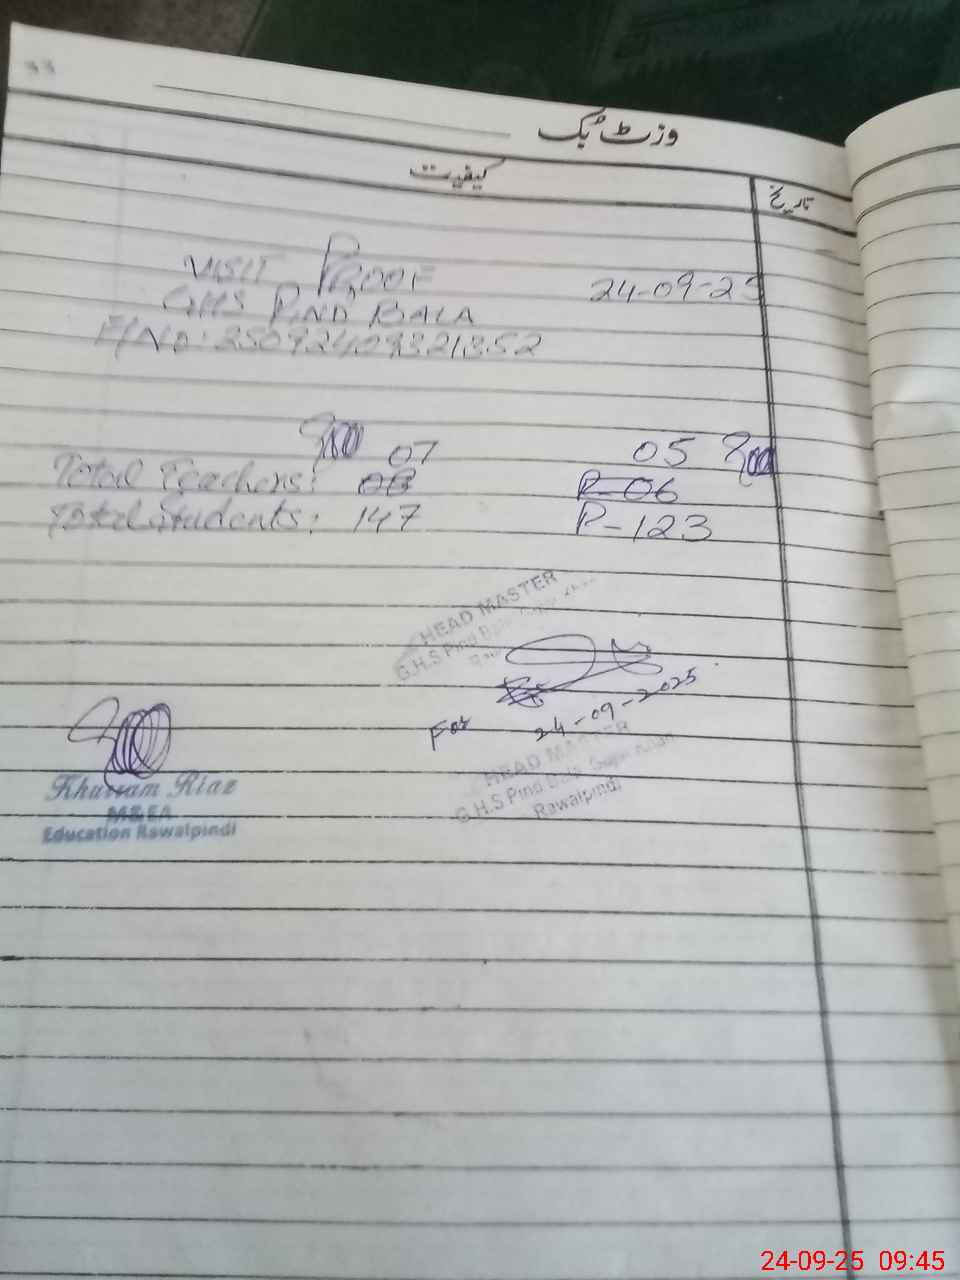 33
وزٹ بک
کیفیت
تاریخ
VISIT PROOF 24-09-25
GHS PIND BALA
F/No: 25092409321352
07 05
Total Teachers: 08 P-06
Total Students: 147 P-123
HEAD MASTER
G.H.S Pind Bala Gujar Khan
For 24-09-2025
HEAD MASTER
G.H.S Pind Bala Gujar Khan
Rawalpindi
Khurram Riaz
M&EA
Education Rawalpindi
24-09-25 09:45